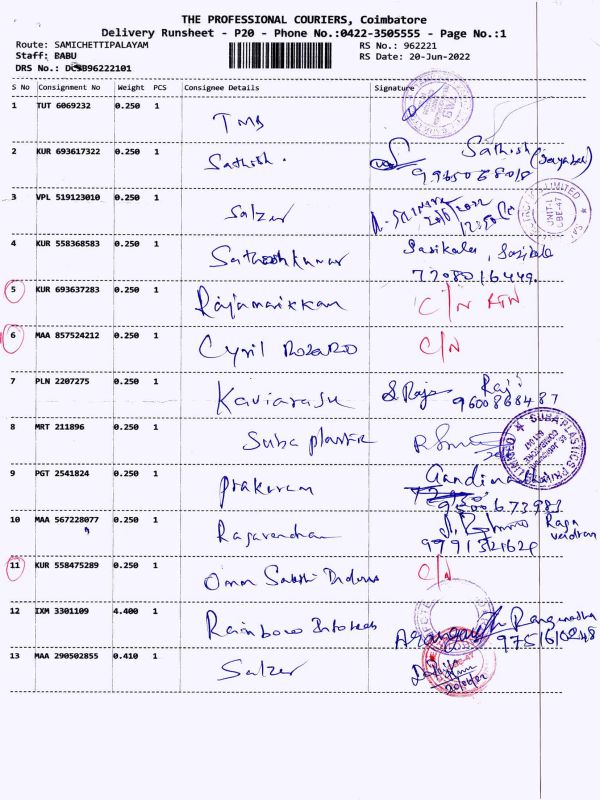 THE PROFESSIONAL COURIERS, Coimbatore
Delivery Runsheet - P20 - Phone No.:0422-3505555 - Page No.:1
Route: SAMICHETTIPALAYAM RS No.: 962221
Staff: BABU RS Date: 20-Jun-2022
DRS No.: DCBB96222101
S No Consignment No Weight PCS Consignee Details Signature
1 TUT 6069232 0.250 1 TMB
2 KUR 693617322 0.250 1 Sathish. Sathish
3 VPL 519123010 0.250 1 Salzer
UNIT-1
CBE-47
4 KUR 558368583 0.250 1 Satheeshkumar Sasikala,
7208016449.
5 KUR 693637283 0.250 1 Rajamanikkam C/N RTN
6 MAA 857524212 0.250 1 Cyril ROZARIO C/N
7 PLN 2207275 0.250 1 Kaviarasu S. Raja Raji
9600868487
8 MRT 211896 0.250 1 Suba plastics
SUBA PLASTICS
LIMITED
9 PGT 2541824 0.250 1 prakaram
9500673981
10 MAA 567228077 0.250 1 Ragavendran
11 KUR 558475289 0.250 1 Omm Sakthi C/N
12 IXM 3301109 4.400 1 Rainbow Infotechs
9751610248
13 MAA 290502855 0.410 1 Salzer